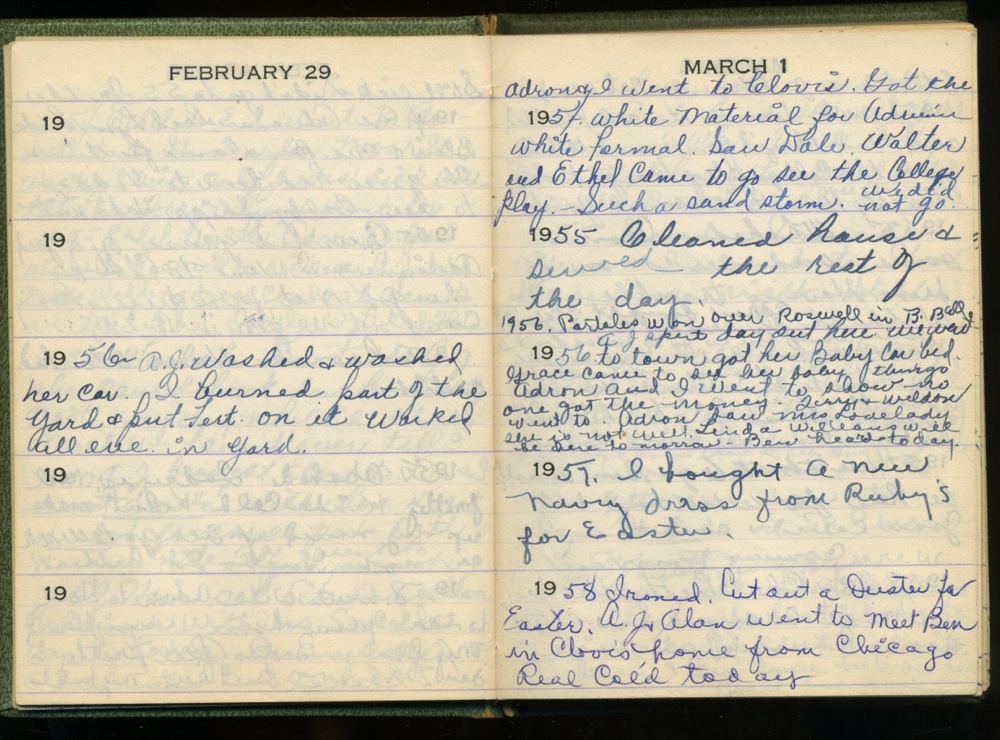 FEBRUARY 29
19
19
19 56 A.J. washed & waxed
her car. I burned part of the
yard & put fert. on it worked
all eve. in yard.
19
19
MARCH 1
Adron & I went to Clovis. Got the
1954 white material for
white formal. Saw Dale. Walter
and Ethel came to go see the College
Play. Such a sand storm. we did
not go.
1955 Cleaned house &
sewed the rest of
the day.
1956. Portales won over Roswell in B. Ball
I spent day out here
1956 to town got her Baby Car bed.
Grace came to see her baby things
Adron and I went to show no
one got the money. Jerry & Weldon
went to. Adron saw Mrs Lovelady
she is not well. Linda Williams will
be here to morrow - Ben here today.
1957. I bought a new
Navy dress from Ruby's
for Easter.
1958 Ironed. Cut out a Duster for
Easter. A.J. & Alan went to meet Ben
in Clovis home from Chicago
Real Cold today